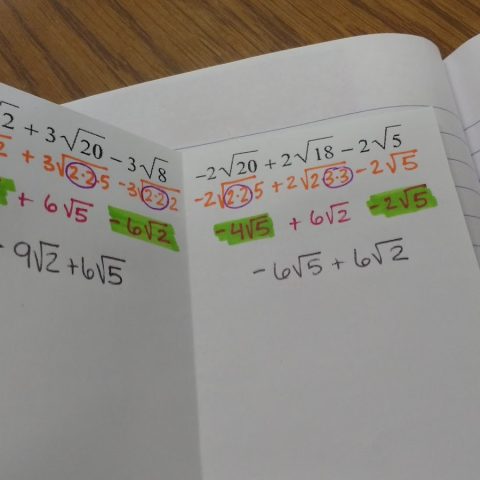 √2 + 3√20 − 3√8
2 + 3√2·2·5 -3√2·2·2
+ 6√5 -6√2
- 9√2 + 6√5
−2√20 + 2√18 − 2√5
-2√2·2·5 + 2√2·3·3 - 2√5
-4√5 + 6√2 -2√5
- 6√5 + 6√2